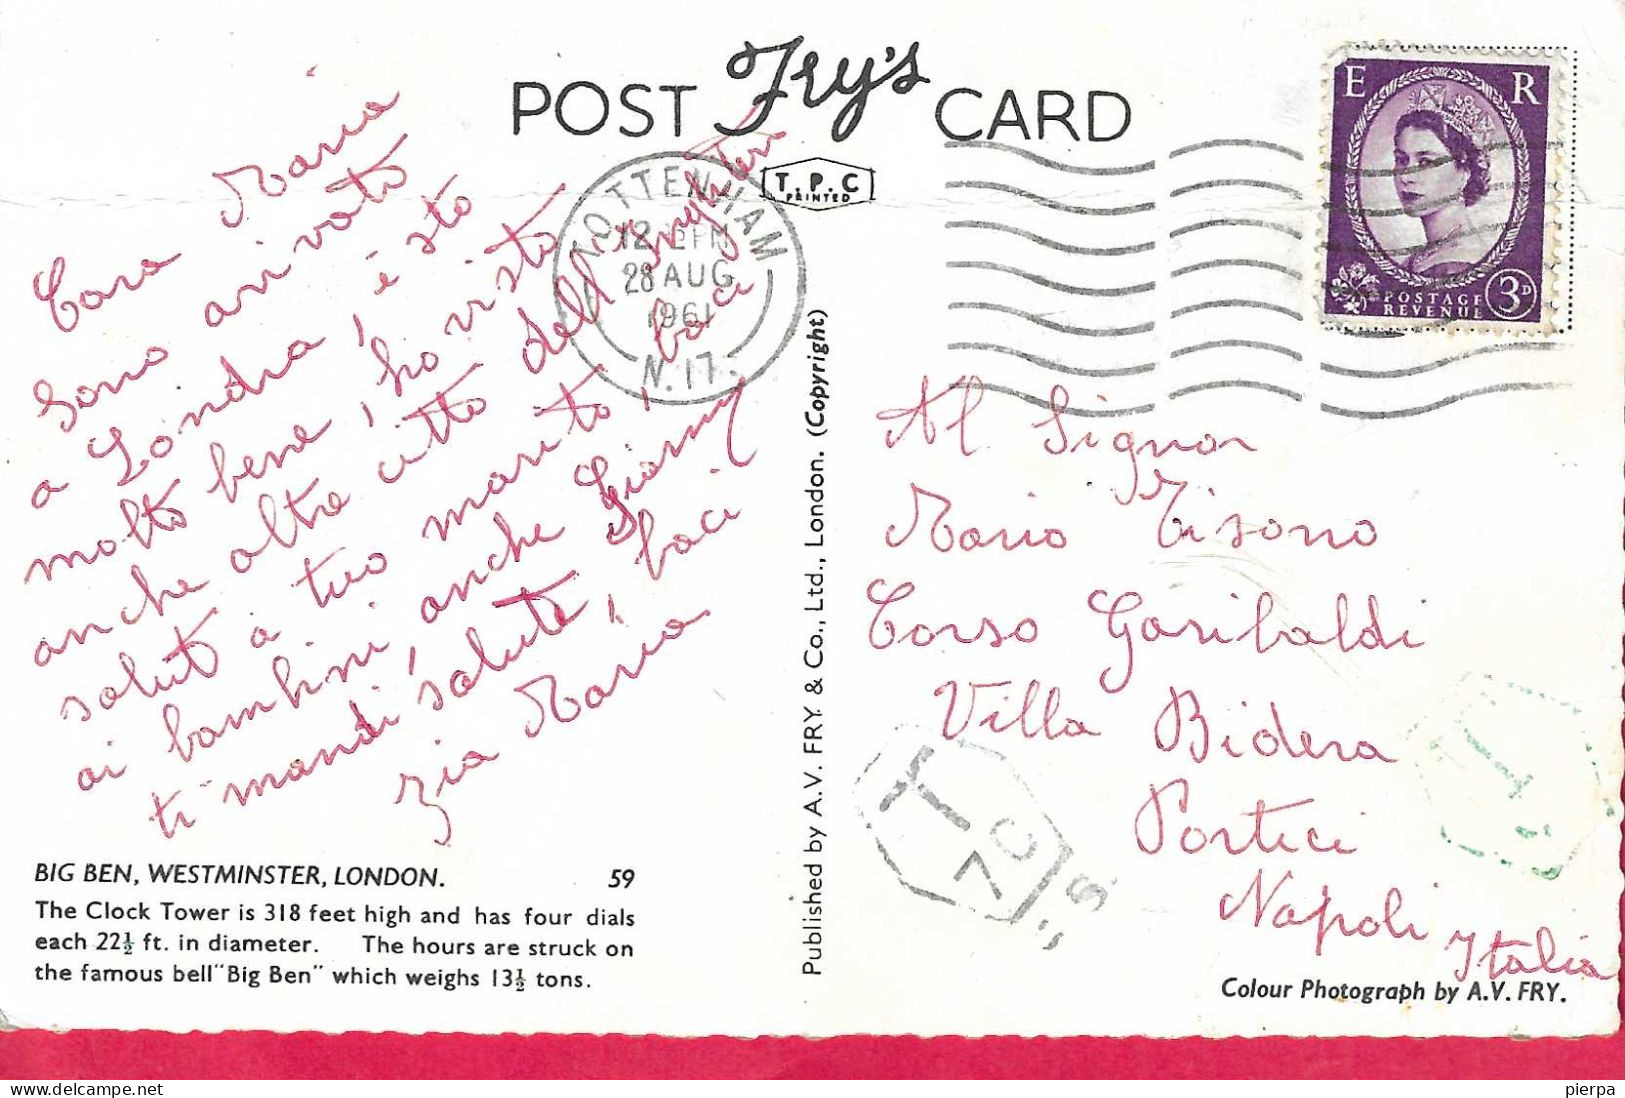 POST Fry's CARD
T.P.C
PRINTED
TOTTENHAM
12 PM
28 AUG
1961
N.17.
E R
POSTAGE
REVENUE
3D
Cara Maria
sono arrivato
a Londra è sto
molto bene, ho visto
anche altre città dell'Inghilterra
saluti a tuo marito, baci
ai bambini, anche Gianny
ti mandi saluti, baci
zia Maria
Al Signor
Mario Tisono
Corso Garibaldi
Villa Bidera
Portici
Napoli Italia
T
7C
T
BIG BEN, WESTMINSTER, LONDON. 59
The Clock Tower is 318 feet high and has four dials
each 22½ ft. in diameter. The hours are struck on
the famous bell "Big Ben" which weighs 13½ tons.
Published by A.V. FRY & Co., Ltd., London. (Copyright)
Colour Photograph by A.V. FRY.
pierpa